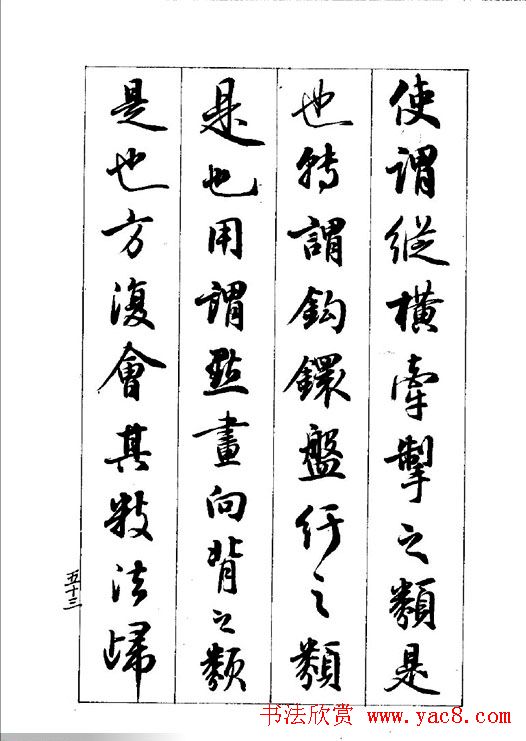 使謂縱橫牽掣之類是
也轉謂鈎鐶盤紆之類
是也用謂點畫向背之類
是也方復會其数法歸
五十三
书法欣赏 www.yac8.com